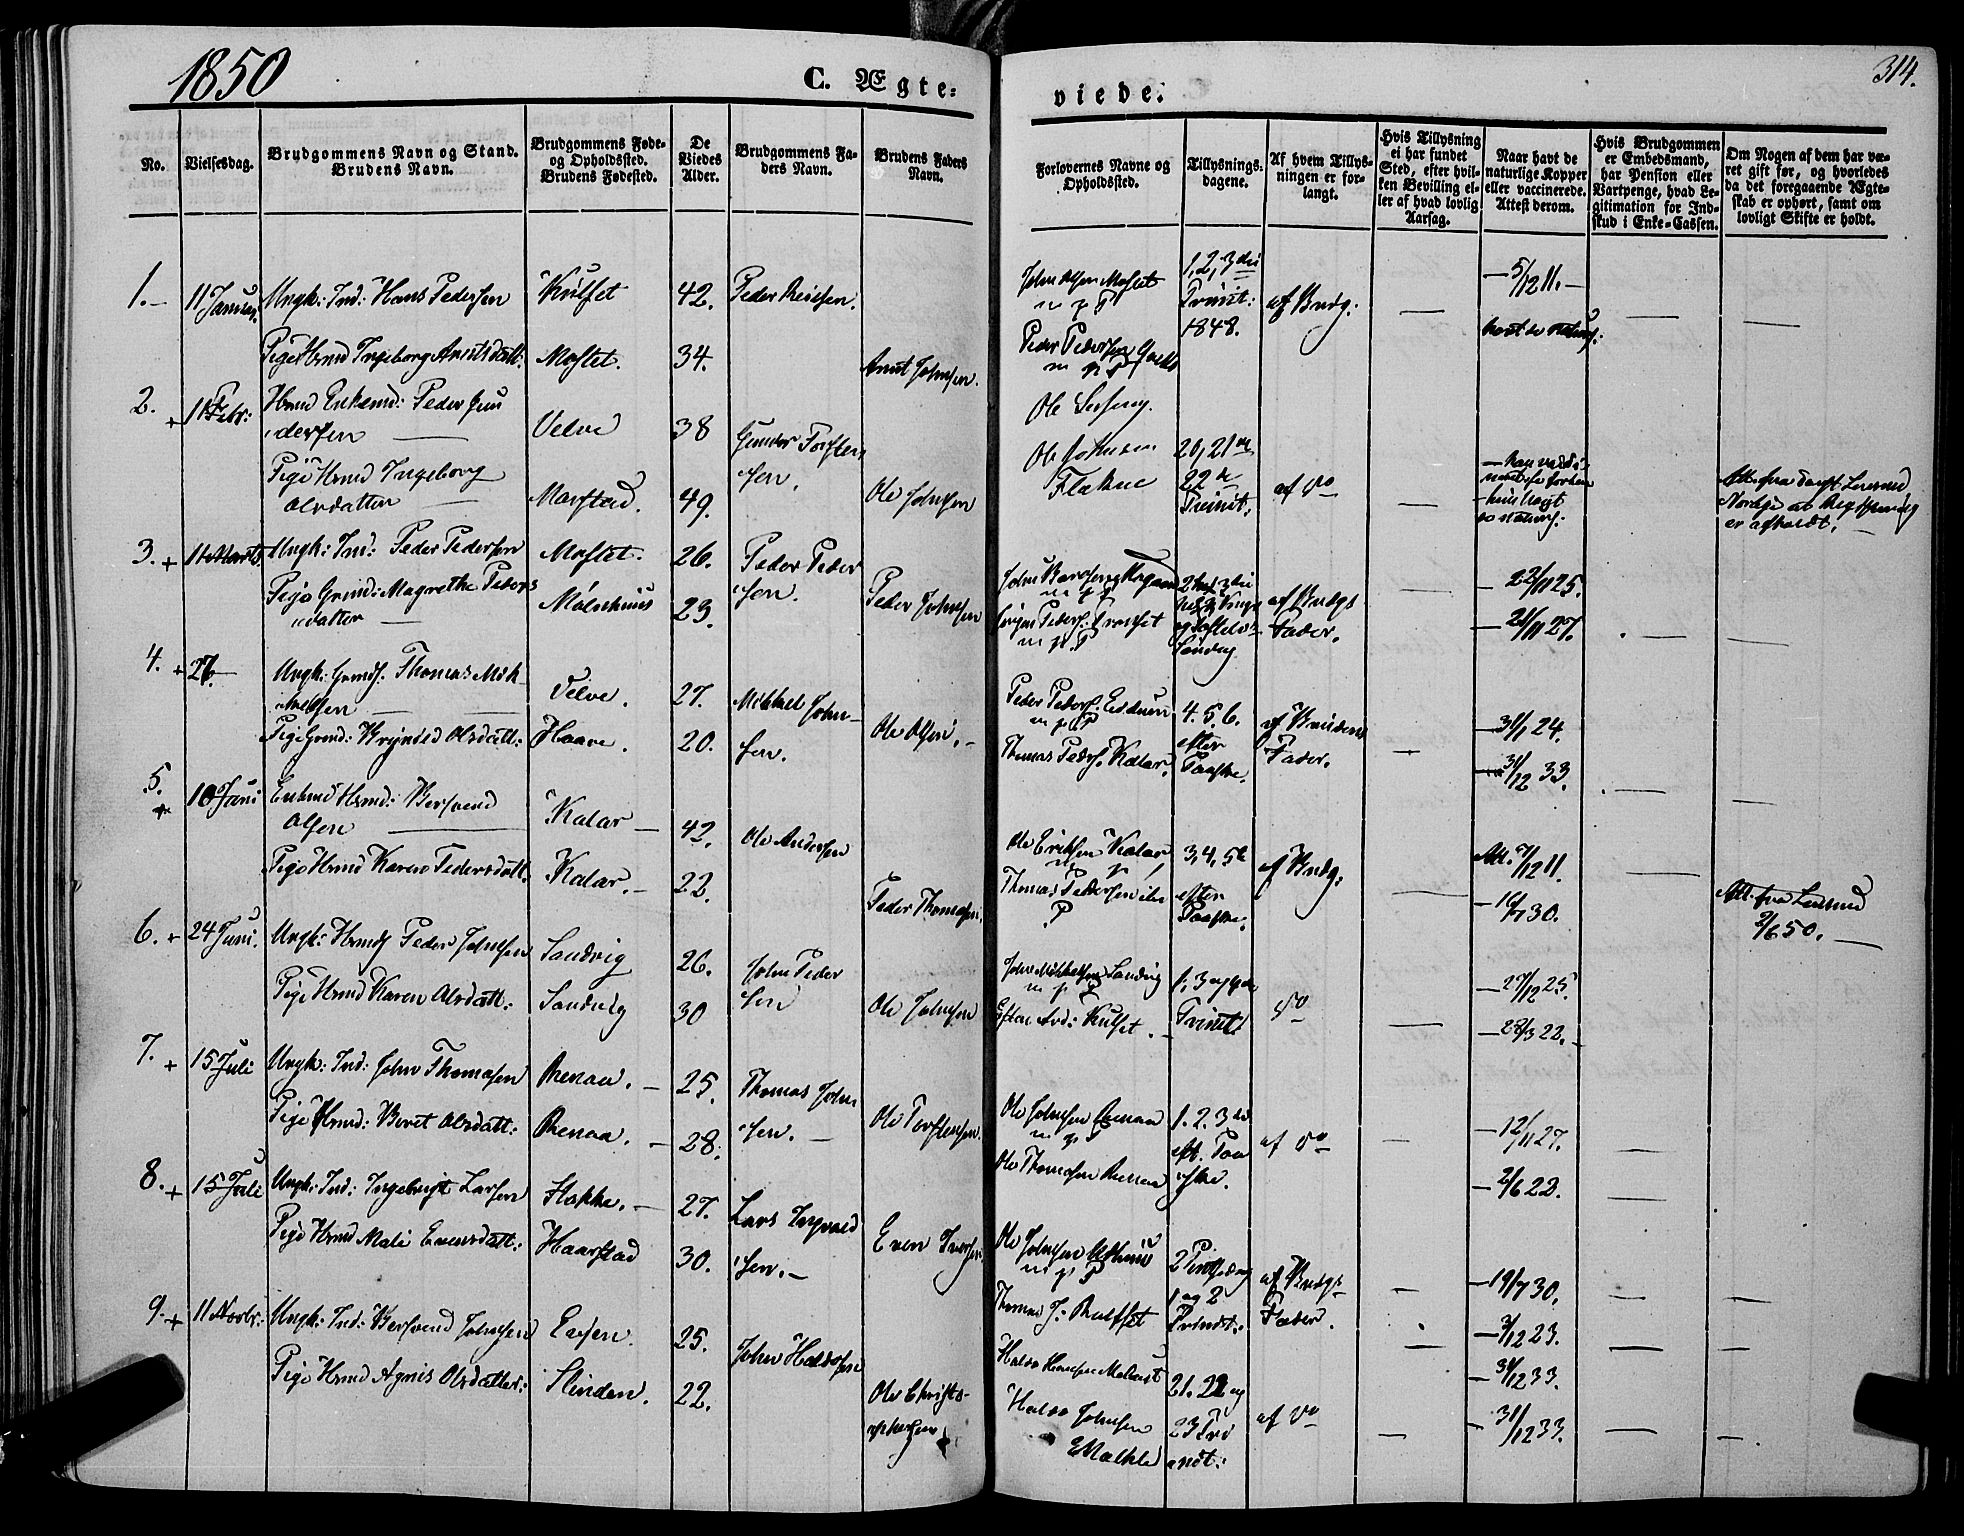 1850
C. Ægte=
viede.
314.
No.
Vielsesdag.
Brudgommens Navn og Stand.
Brudens Navn.
Brudgommens Føde=
og Opholdssted.
Brudens Fødested.
De
Viedes
Alder.
Brudgommens Fa=
ders Navn.
Brudens Faders
Navn.
Forlovernes Navne og
Opholdssted.
Tillysnings=
dagene.
Af hvem Tillys=
ningen er for=
langt.
Hvis Tillysning
ei har fundet
Sted, efter hvil=
ken Bevilling el=
ler af hvad lovlig
Aarsag.
Naar havt de
naturlige Kopper
eller vaccinerede.
Attest derom.
Hvis Brudgommen
er Embedsmand,
har Pension eller
Vartpenge, hvad Le=
gitimation for Ind=
skud i Enke=Cassen.
Om Nogen af dem har væ=
ret gift før, og hvorledes
da det foregaaende Ægte=
skab er ophørt, samt om
lovligt Skifte er holdt.
1.
11 Januar.
Ungk: Ind: Hans Pedersen
Kulset
42.
Peder
1, 2, 3die
Trinit:
1848.
af Brdg:
5/12 11.
Pige Hmd Ingeborg Arntsdatt:
Moslet.
34.
Arnt Johnsen.
Peder Pedersen
2. +
11 Febr:
Hmd Enkemd: Peder Gun
dersen
Velve
38
Gunder Torsten
sen.
Pige Hmd Ingeborg
Olsdatter
Morstad.
49.
Ole Johnsen
Ole Johnsen
20, 21de
22de
Trinit.
af Do
er afholdt.
3. +
11 Marts.
Ungk: Ind: Peder Pedersen
Moslet.
26.
Peder Peder
sen.
22/11 25.
Pige Gmd: Magrethe Peders
datter
Mølnhuus
23.
Peder Johnsen
af Brdgs
Fader.
21/11 27.
Søndag
4. +
27.
Ungk: Gmds. Thomas Mik
kelsen
Velve.
27.
Mikkel John
sen.
4. 5. 6.
efter
Paaske.
af Brudens
Fader.
31/1 24.
Pige Gmd: Brynted Olsdatt:
Haave.
20.
Ole Olsen.
Thomas Peders. Kalar.
31/12 33.
5. +
10 Juni
Enkmd Hmd: Bersvend
Olsen
Kalar
42.
Ole Andersen
Ole Eriksen Kalar
3, 4, 5te
efter
Paaske.
af Brdg:
Att. 7/12 11.
Pige Hmd Karen Pedersdatt.
Kalar.
22.
Peder Thomasen.
Thomas Pedersen
16/7 30.
Att. fra
2/6 50.
6. +
24 Juni.
Ungk: Hmds Peder Johnsen
Sandvig
26.
John Peder
sen
John Mikkelsen Sandvig
1. 3 og 4de
Trinit.
Do
27/12 25.
Pige Hmd Karen Olsdatt:
Sandvig
30
Ole Johnsen
28/3 22.
7. +
15 Juli
Ungk: Ind: John Thomasen
Renaa.
25.
Thomas John
sen.
Ole Johnsen Renaa
1. 2. 3de
eft. Paa
ske.
af Do
12/11 27.
Pige Hmd: Beret Olsdatt:
Renaa.
28.
Ole Torstensen.
Ole Thomasen Renaa
2/6 22.
8. +
15 Juli
Ungk: Ind: Ingebrigt Larsen
Flakke.
27.
Lars Ingvald
sen.
Ole Johnsen
2 Pinsedag
1 og 2
Trinit.
af Brdgs
Fader.
19/7 30.
Pige Hmd Mali Evensdatt:
Haarstad
30.
Even Iversen.
Thomas J:
3/12 23.
9. +
11 Novbr:
Ungk: Ind: Bersvend Johnsen
25.
John Haldosen
21. 22 og
23 Tri
nit:
af Do
31/12 33.
Pige Hmd Agnis Olsdatter:
Slinden.
22.
Ole Christo-
phersen
Haldo Johnsen
31/12 33.